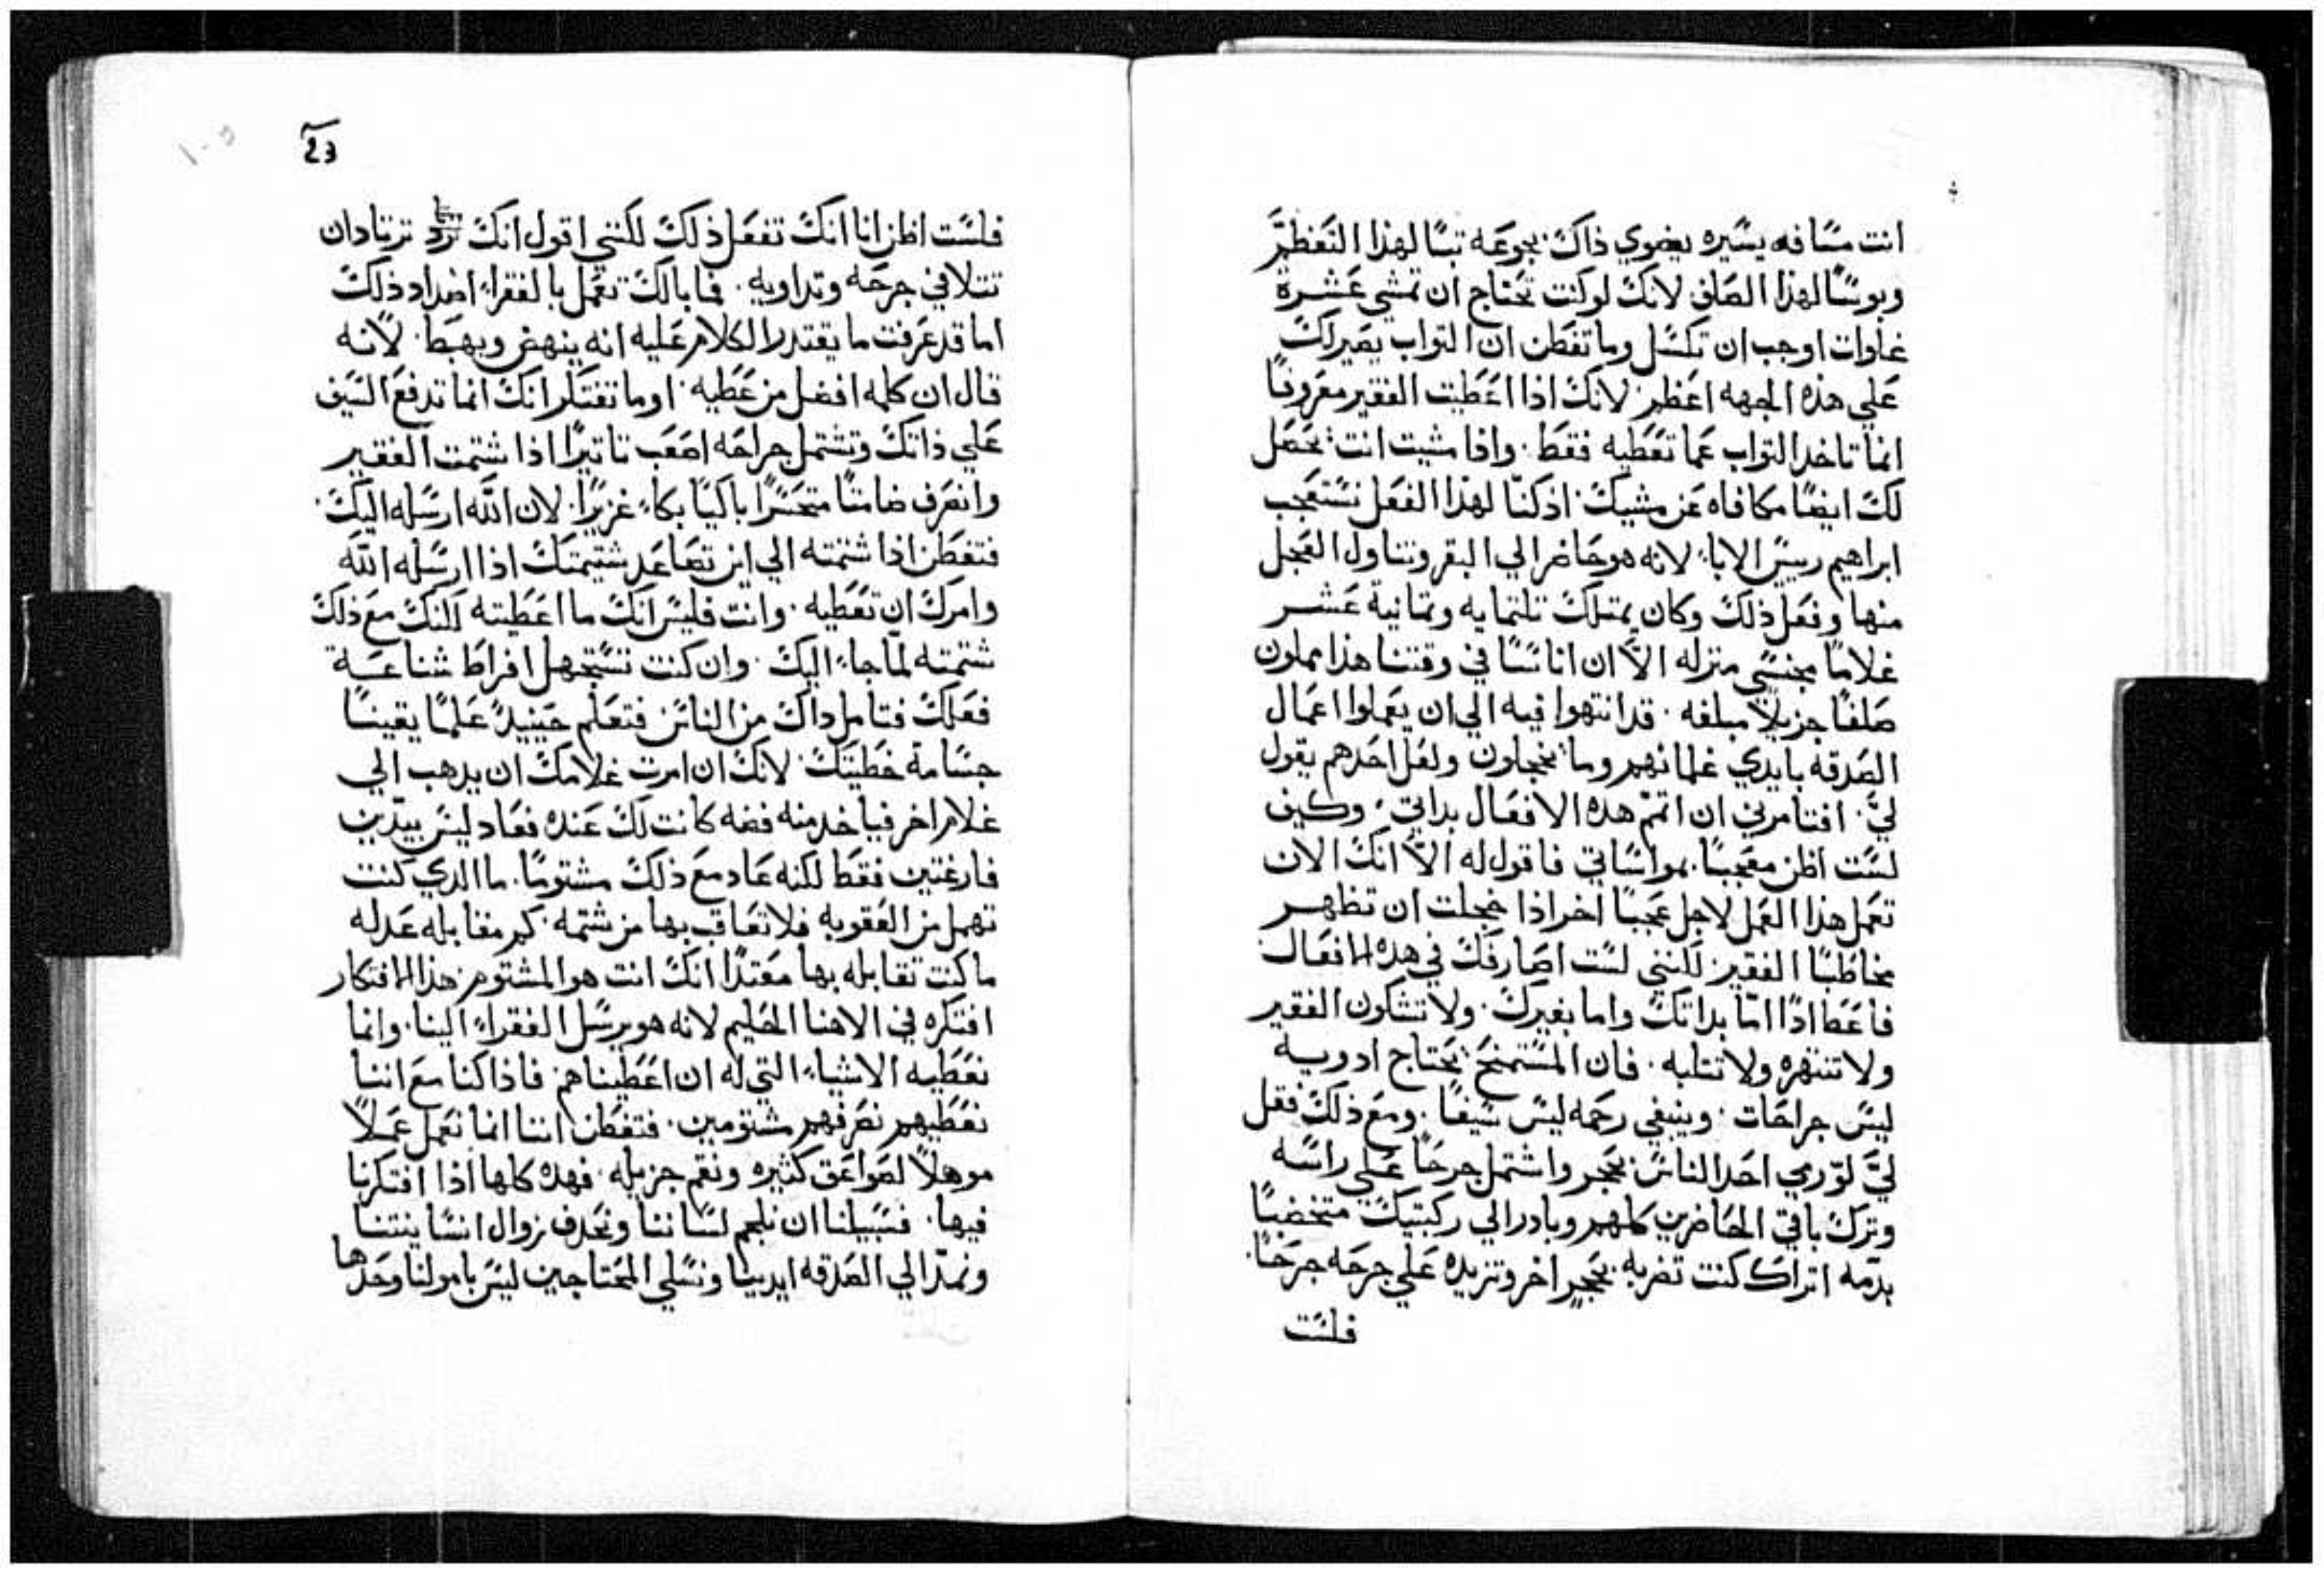 انت مسافه يسيره يضوي ذاك بجوعه تبا لهذا التعظم
وبوسا لهذا الصلف لانك لو كنت تحتاج ان تمشي عشرة
غلوات اوجب ان تكسل وما تفطن ان التواب يصير لك
علي هذه الجهه اعظم لانك اذا اعطيت الفقير معروفا
انما تاخد التواب عما تعطيه فقط. واذا مشيت انت يحصل
لك ايضا مكافاه عن مشيك اذ كنا لهذا الفعل نستعجب
ابراهيم رييس الابا لانه هو حاضر الي البقر وتناول العجل
منها وفعل ذلك وكان يمتلك تلتمايه وتمانية عشر
غلاما بجنسي منزله الا ان اناسا في وقتنا هذا مملون
صلفا جزيلا مبلغه. قد انتهوا فيه الي ان يعملوا اعمال
الصدقه بايدي غلمانهم وما يخجلون ولعل احدهم يقول
لي. افتامرني ان اتمم هده الافعال بداتي. وكيف
لست اظن معجبا بمواساتي فاقول له الا انك الان
تعمل هذا العمل لاجل عجبا اخر اذا خجلت ان تظهر
مخاطبا الفقير لكنني لست اصارفك في هده الافعال
فاعطا اذا اما بداتك واما بغيرك. ولا تشكون الفقير
ولا تنتهره ولا تتلبه. فان المستمنح يحتاج ادويه
ليس جراحات. وينبغي رحمه ليس سيفا. ومع ذلك فقل
لي لو رمي احد الناس بحجر واشتمل جرحا علي راسه
وترك باقي الحاضرين كلهم وبادر الي ركبتيك متخضبا
بدمه اتراك كنت تضربه بحجر اخر وتزيده علي جرحه جرحا.
فلست
23
فلست اظن انا انك تفعل ذلك لكنني اقول انك ترتاد ان
تتلافي جرحه وتداويه. فما بالك تعمل بالفقراء اضداد ذلك
اما قد عرفت ما يقتدر الكلام عليه انه ينهض ويهبط. لانه
قال ان كلمه افضل من عطيه. اوما تفتكر انك انما تدفع السيف
علي ذاتك وتشتمل جراحه اصعب تاتيرا اذا شتمت الفقير
وانصرف صامتا متحسرا باكيا بكاء غزيرا. لان الله ارسله اليك.
فتفطن اذا شتمته الي اين تصاعد شتيمتك اذا ارسله الله
وامرك ان تعطيه. وانت فليس انك ما اعطيته لكنك مع ذلك
شتمته لما جاء اليك. وان كنت تستجهل افراط شناعة
فعلك فتامل داك من الناس فتعلم حينيد علما يقينا
جسامة خطيتك. لانك ان امرت غلامك ان يدهب الي
غلام اخر فياخد منه فضه كانت لك عنده فعاد ليس بيدين
فارغتين فقط لكنه عاد مع ذلك مشتوما. ما الدي كنت
تهمل من العقوبه فلا تعاقب بها من شتمه. كم مقابله عدله
ما كنت تقابله بها معتدا انك انت هو المشتوم. هذا الافتكار
افتكره في الاهنا الحليم لانه هو يرسل الفقراء الينا. وانما
نعطيه الاشياء التي له ان اعطيناهم. فاذا كنا مع اننا
نعطيهم نصرفهم مشتومين. فتفطن اننا انما نعمل عملا
موهلا لصواعق كثيره ونقم جزيله. فهده كلها اذا افتكرنا
فيها. فسبيلنا ان نلجم لساننا ونحدف زوال انساينتنا
ونمد الي الصدقه ايدينا ونسلي المحتاجين ليس باموالنا وحدها